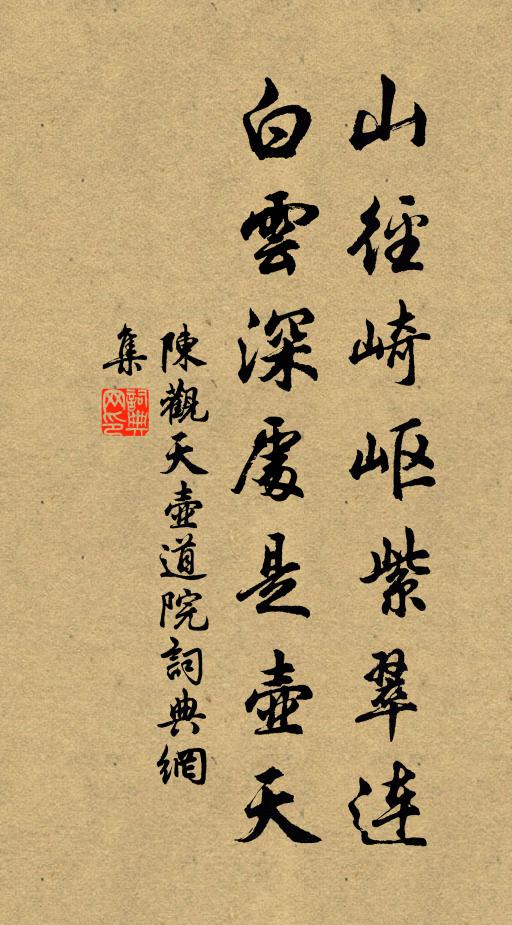 山徑崎岖紫翠连
白雲深處是壺天
陳觀天壺道院詞典網
集
詞典網印